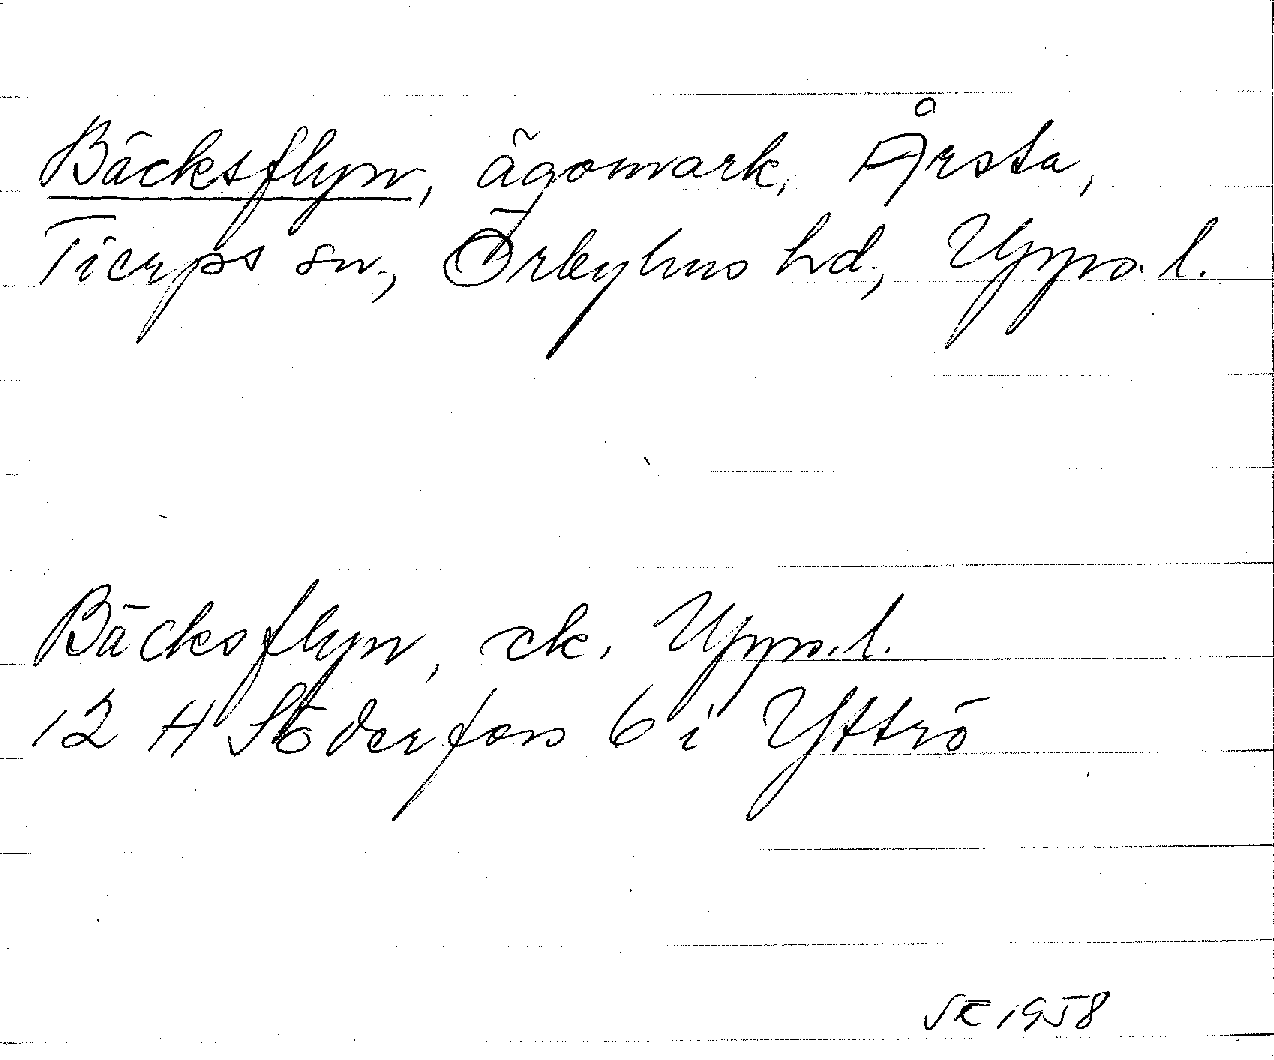 Bäcksflyn, ägomark, Årsta,
Tierps sn, Örbyhus hd, Upps. l.
Bäcksflyn, ek. Upps. l.
12 H Söderfors 6 i Yttrö
1958